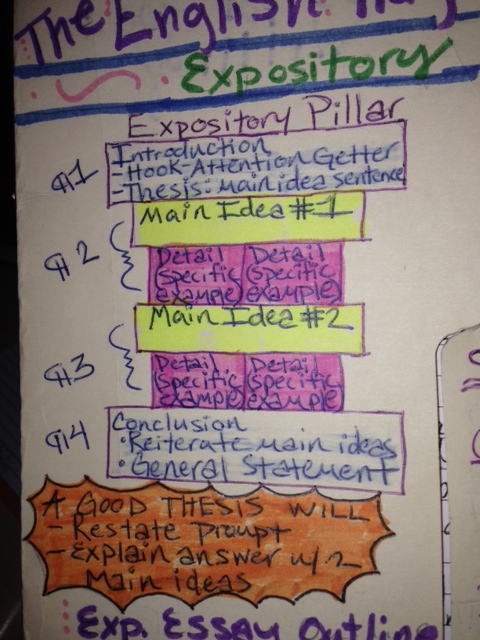 The English
Expository
Expository Pillar
¶1
Introduction
-Hook-Attention Getter
-Thesis: main idea sentence
Main Idea #1
¶2
Detail Detail
(specific (specific
example) example)
Main Idea #2
¶3
Detail Detail
(specific (specific
example) example)
¶4
Conclusion
•Reiterate main ideas
•General Statement
A GOOD THESIS WILL
- Restate prompt
- Explain answer w/2
Main ideas
Exp. ESSAY Outline